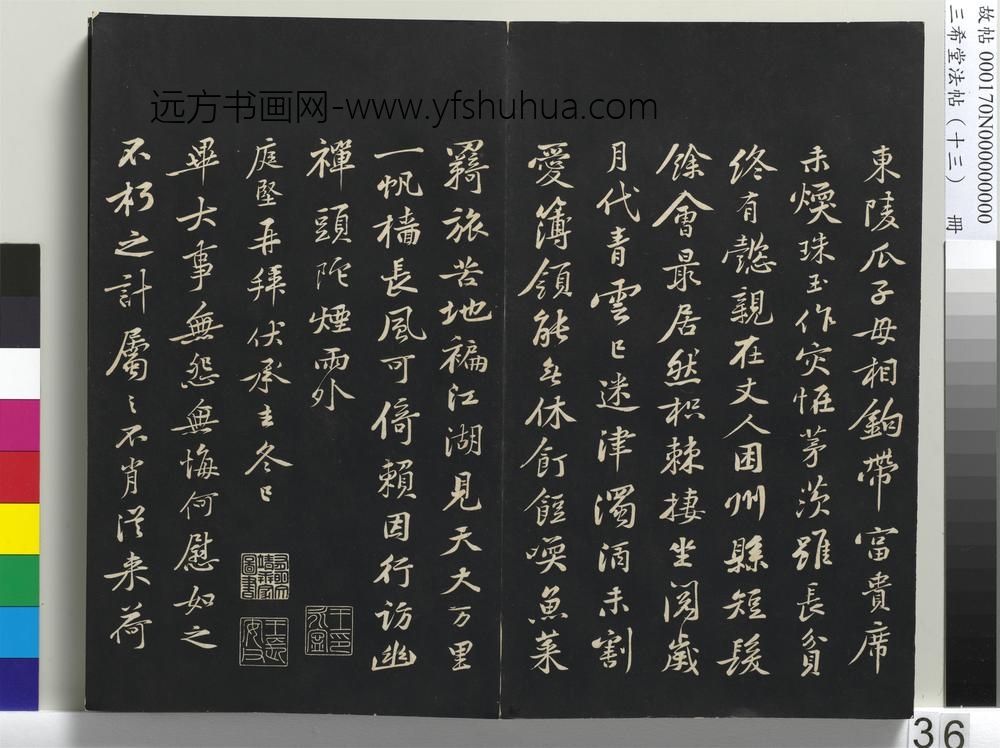 远方书画网-www.yfshuhua.com
東陵瓜子母相鉤帶富貴席
未煖珠玉作災怪茅茨雖長貧
終有懿親在丈人困州縣短髮
餘會最居然枳棘棲坐閱歲
月代青雲已迷津濁酒未割
愛簿領能休飣餖喚魚菜
羇旅苦地褊江湖見天大万里
一帆檣長風可倚賴因行訪幽
禪頭陀煙雨外
庭堅再拜伏承去冬已
畢大事無怨無悔何慰如之
不朽之計屬之不肖從來荷
王長安父
故帖 000170N000000000
三希堂法帖(十三) 冊
36